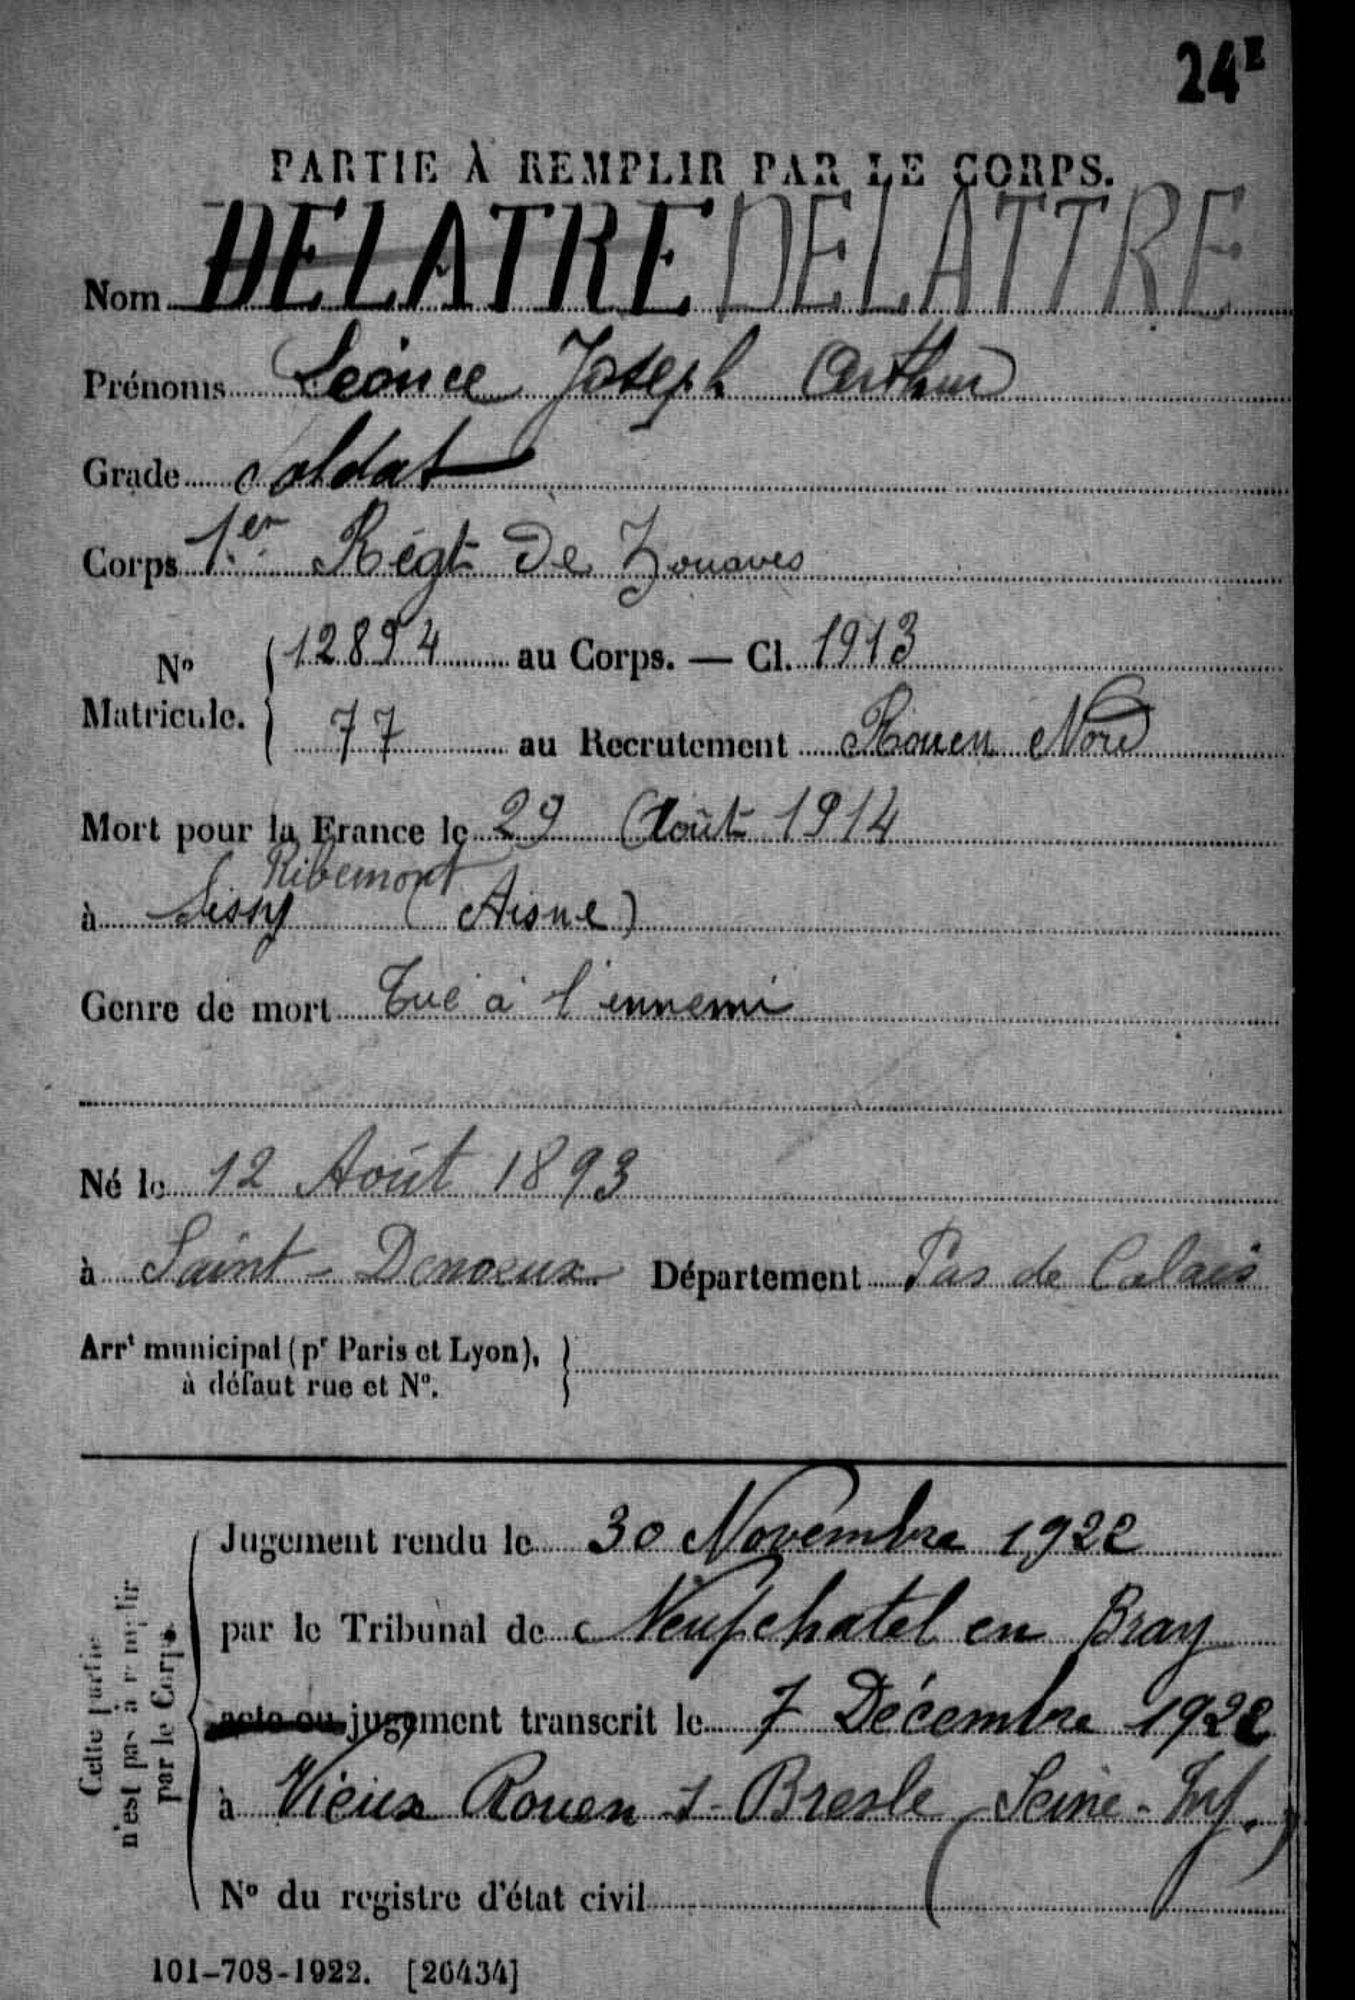 24E
PARTIE À REMPLIR PAR LE CORPS.
Nom DELATRE DELATTRE
Prénoms Léonce Joseph Arthur
Grade Soldat
Corps 1er Régt de Zouaves
No Matricule. { 12894 au Corps. — Cl. 1913
77 au Recrutement Rouen Nord
Mort pour la France le 29 Août 1914
Ribemont
à Sissy (Aisne)
Genre de mort Tué à l'ennemi
Né le 12 Août 1893
à Saint-Denoeux Département Pas de Calais
Arrt municipal (pr Paris et Lyon), }
à défaut rue et No.
Cette partie
n'est pas à remplir
par le Corps.
Jugement rendu le 30 Novembre 1922
par le Tribunal de Neufchatel en Bray
acte ou jugement transcrit le 7 Décembre 1922
à Vieux Rouen s- Bresle (Seine-Inf.)
No du registre d'état civil
101-708-1922. [26434]